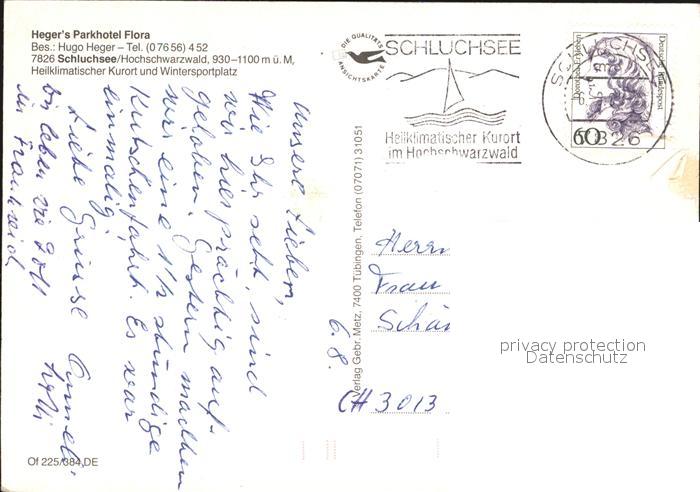 Heger's Parkhotel Flora
Bes.: Hugo Heger – Tel. (0 76 56) 4 52
7826 Schluchsee/Hochschwarzwald, 930–1100 m ü. M,
Heilklimatischer Kurort und Wintersportplatz
DIE QUALITÄTS
ANSICHTSKARTE
SCHLUCHSEE
Heilklimatischer Kurort
im Hochschwarzwald
SCHLUCHSEE
7826
Dorothea Erxleben
Deutsche Bundespost
60
Unsere Lieben,
Wie Ihr seht, sind
wir hier prächtig auf-
gehoben. Gestern machten
wir eine 1 1/2 stündige
Kutschenfahrt. Es war
einmalig.
Liebe Grüsse
wir leben wie Gott
in Frankreich
6. 8.
Verlag Gebr. Metz, 7400 Tübingen, Telefon (07071) 31051
Herrn
Frau
Schär
CH 3013
privacy protection
Datenschutz
Of 225/384 DE